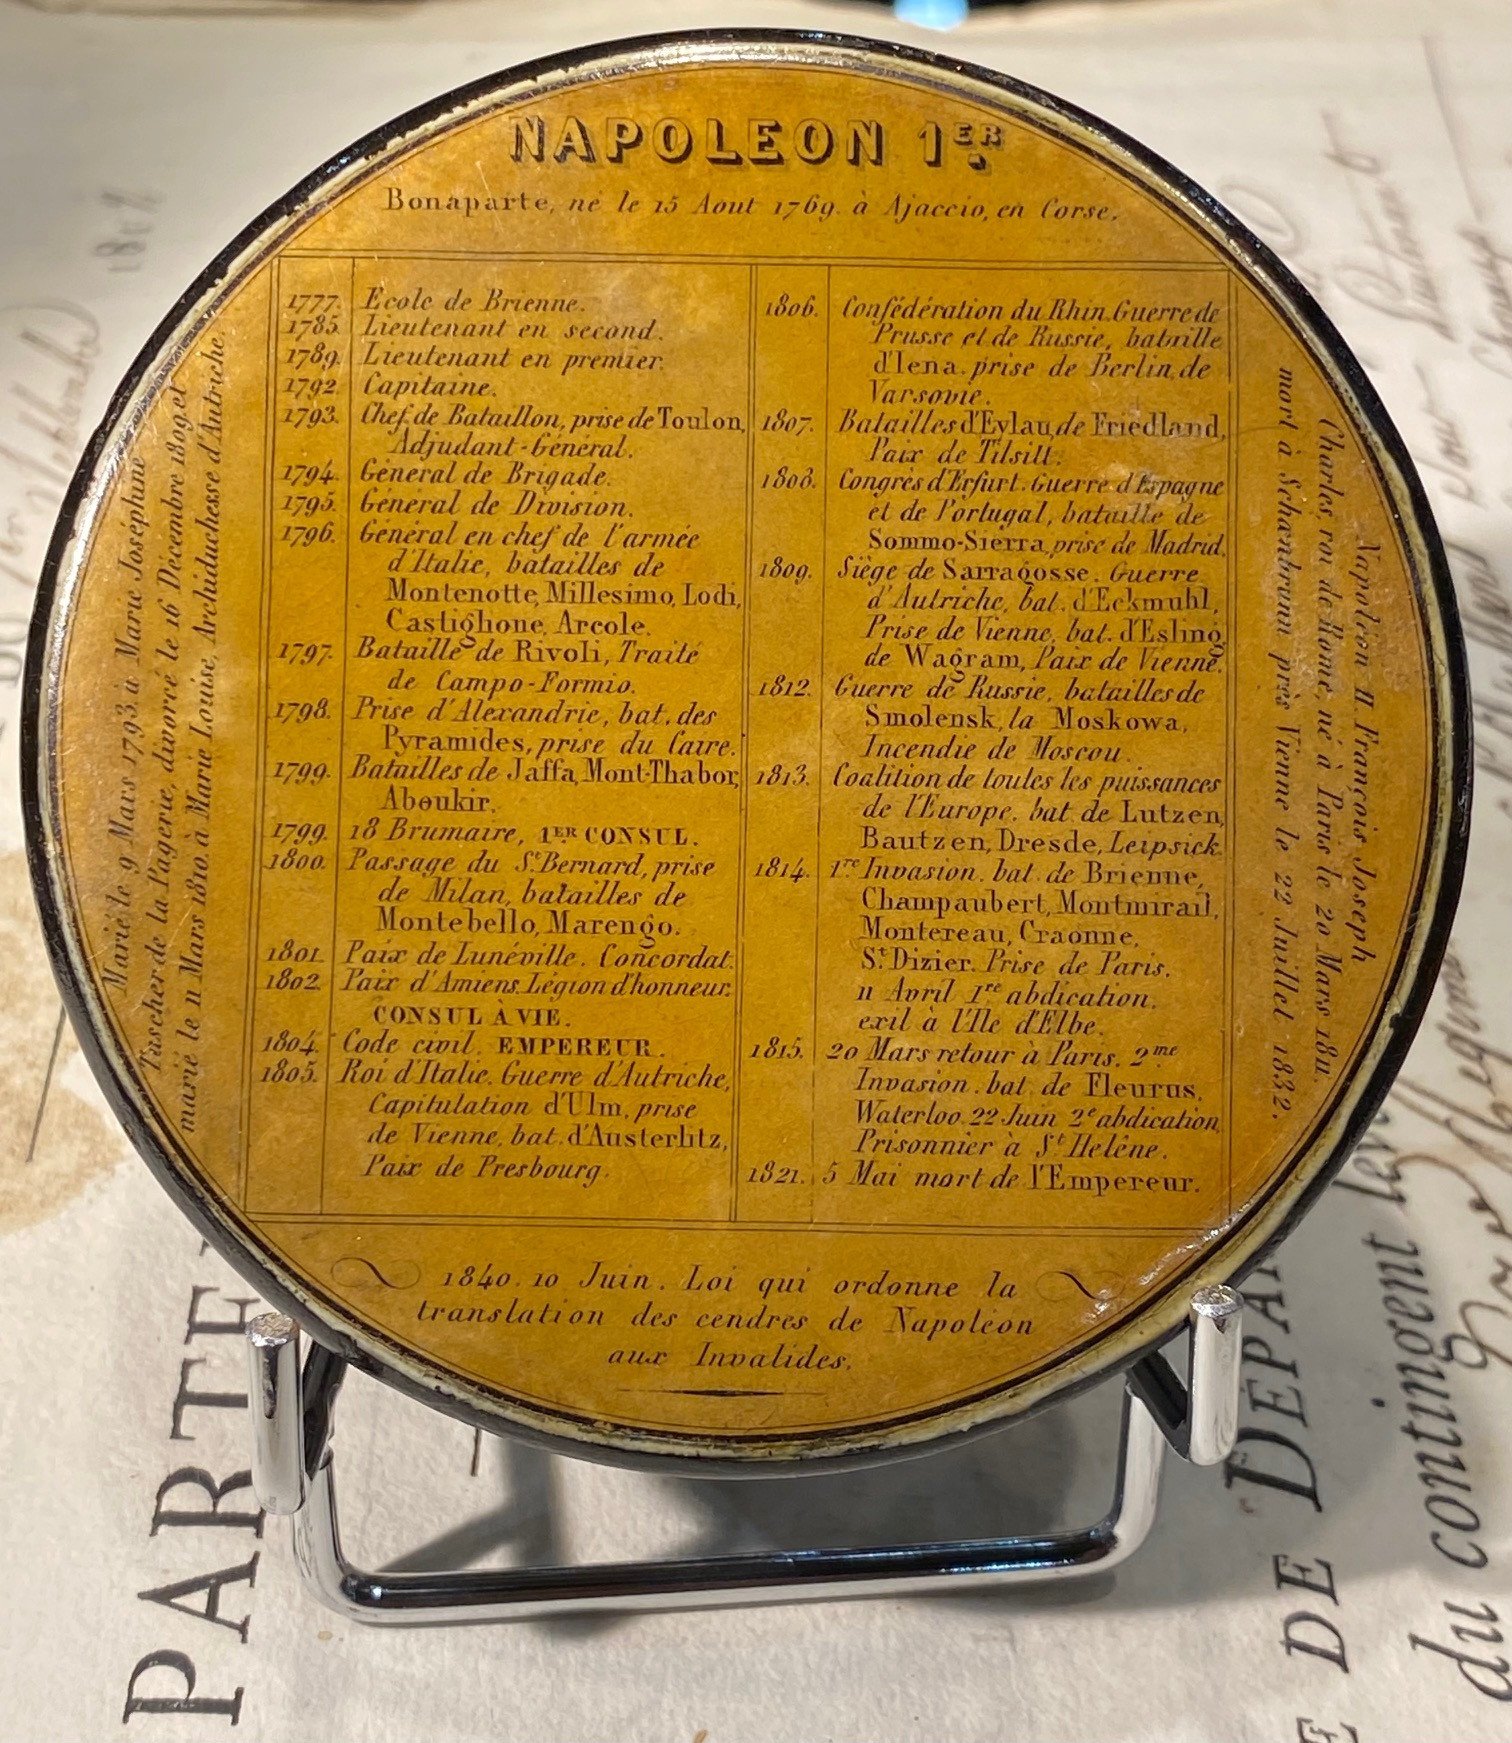 NAPOLEON 1ER.
Bonaparte, né le 15 Aout 1769. à Ajaccio, en Corse.
1777. Ecole de Brienne.
1785. Lieutenant en second.
1789. Lieutenant en premier.
1792. Capitaine.
1793. Chef de Bataillon, prise de Toulon,
Adjudant-Général.
1794. Général de Brigade.
1795. Général de Division.
1796. Général en chef de l'armée
d'Italie, batailles de
Montenotte, Millesimo, Lodi,
Castighone, Arcole.
1797. Bataille de Rivoli, Traité
de Campo-Formio.
1798. Prise d'Alexandrie, bat. des
Pyramides, prise du Caire.
1799. Batailles de Jaffa, Mont-Thabor,
Aboukir.
1799. 18 Brumaire, 1ER CONSUL.
1800. Passage du St Bernard, prise
de Milan, batailles de
Montebello, Marengo.
1801. Paix de Lunéville. Concordat.
1802. Paix d'Amiens. Légion d'honneur.
CONSUL À VIE.
1804. Code civil. EMPEREUR.
1805. Roi d'Italie. Guerre d'Autriche,
Capitulation d'Ulm, prise
de Vienne, bat. d'Austerlitz,
Paix de Presbourg.
1806. Confédération du Rhin. Guerre de
Prusse et de Russie, bataille
d'Iena. prise de Berlin, de
Varsovie.
1807. Batailles d'Eylau, de Friedland,
Paix de Tilsitt.
1808. Congrès d'Erfurt. Guerre d'Espagne
et de Portugal, bataille de
Sommo-Sierra, prise de Madrid.
1809. Siège de Sarragosse. Guerre
d'Autriche, bat. d'Eckmuhl,
Prise de Vienne, bat. d'Esling
de Wagram, Paix de Vienne.
1812. Guerre de Russie, batailles de
Smolensk, la Moskowa,
Incendie de Moscou.
1813. Coalition de toutes les puissances
de l'Europe. bat. de Lutzen,
Bautzen, Dresde, Leipsick.
1814. 1re Invasion. bat. de Brienne,
Champaubert, Montmirail,
Montereau, Craonne,
St Dizier. Prise de Paris.
11 Avril 1re abdication.
exil à l'Ile d'Elbe.
1815. 20 Mars retour à Paris. 2me
Invasion. bat. de Fleurus,
Waterloo. 22 Juin 2e abdication
Prisonnier à St Helêne.
1821. 5 Mai mort de l'Empereur.
Marié le 9 Mars 1793. à Marie Joséphine
Tascher de la Pagerie, divorcé le 16 Décembre 1809. et
marié le 11 Mars 1810. à Marie Louise, Archiduchesse d'Autriche.
Napoléon II. François Joseph
Charles, roi de Rome, né à Paris le 20 Mars 1811.
mort à Schœnbrunn près Vienne le 22 Juillet 1832.
1840. 10 Juin. Loi qui ordonne la
translation des cendres de Napoléon
aux Invalides.
PARTE
DE DÉPAR
du contingent levé